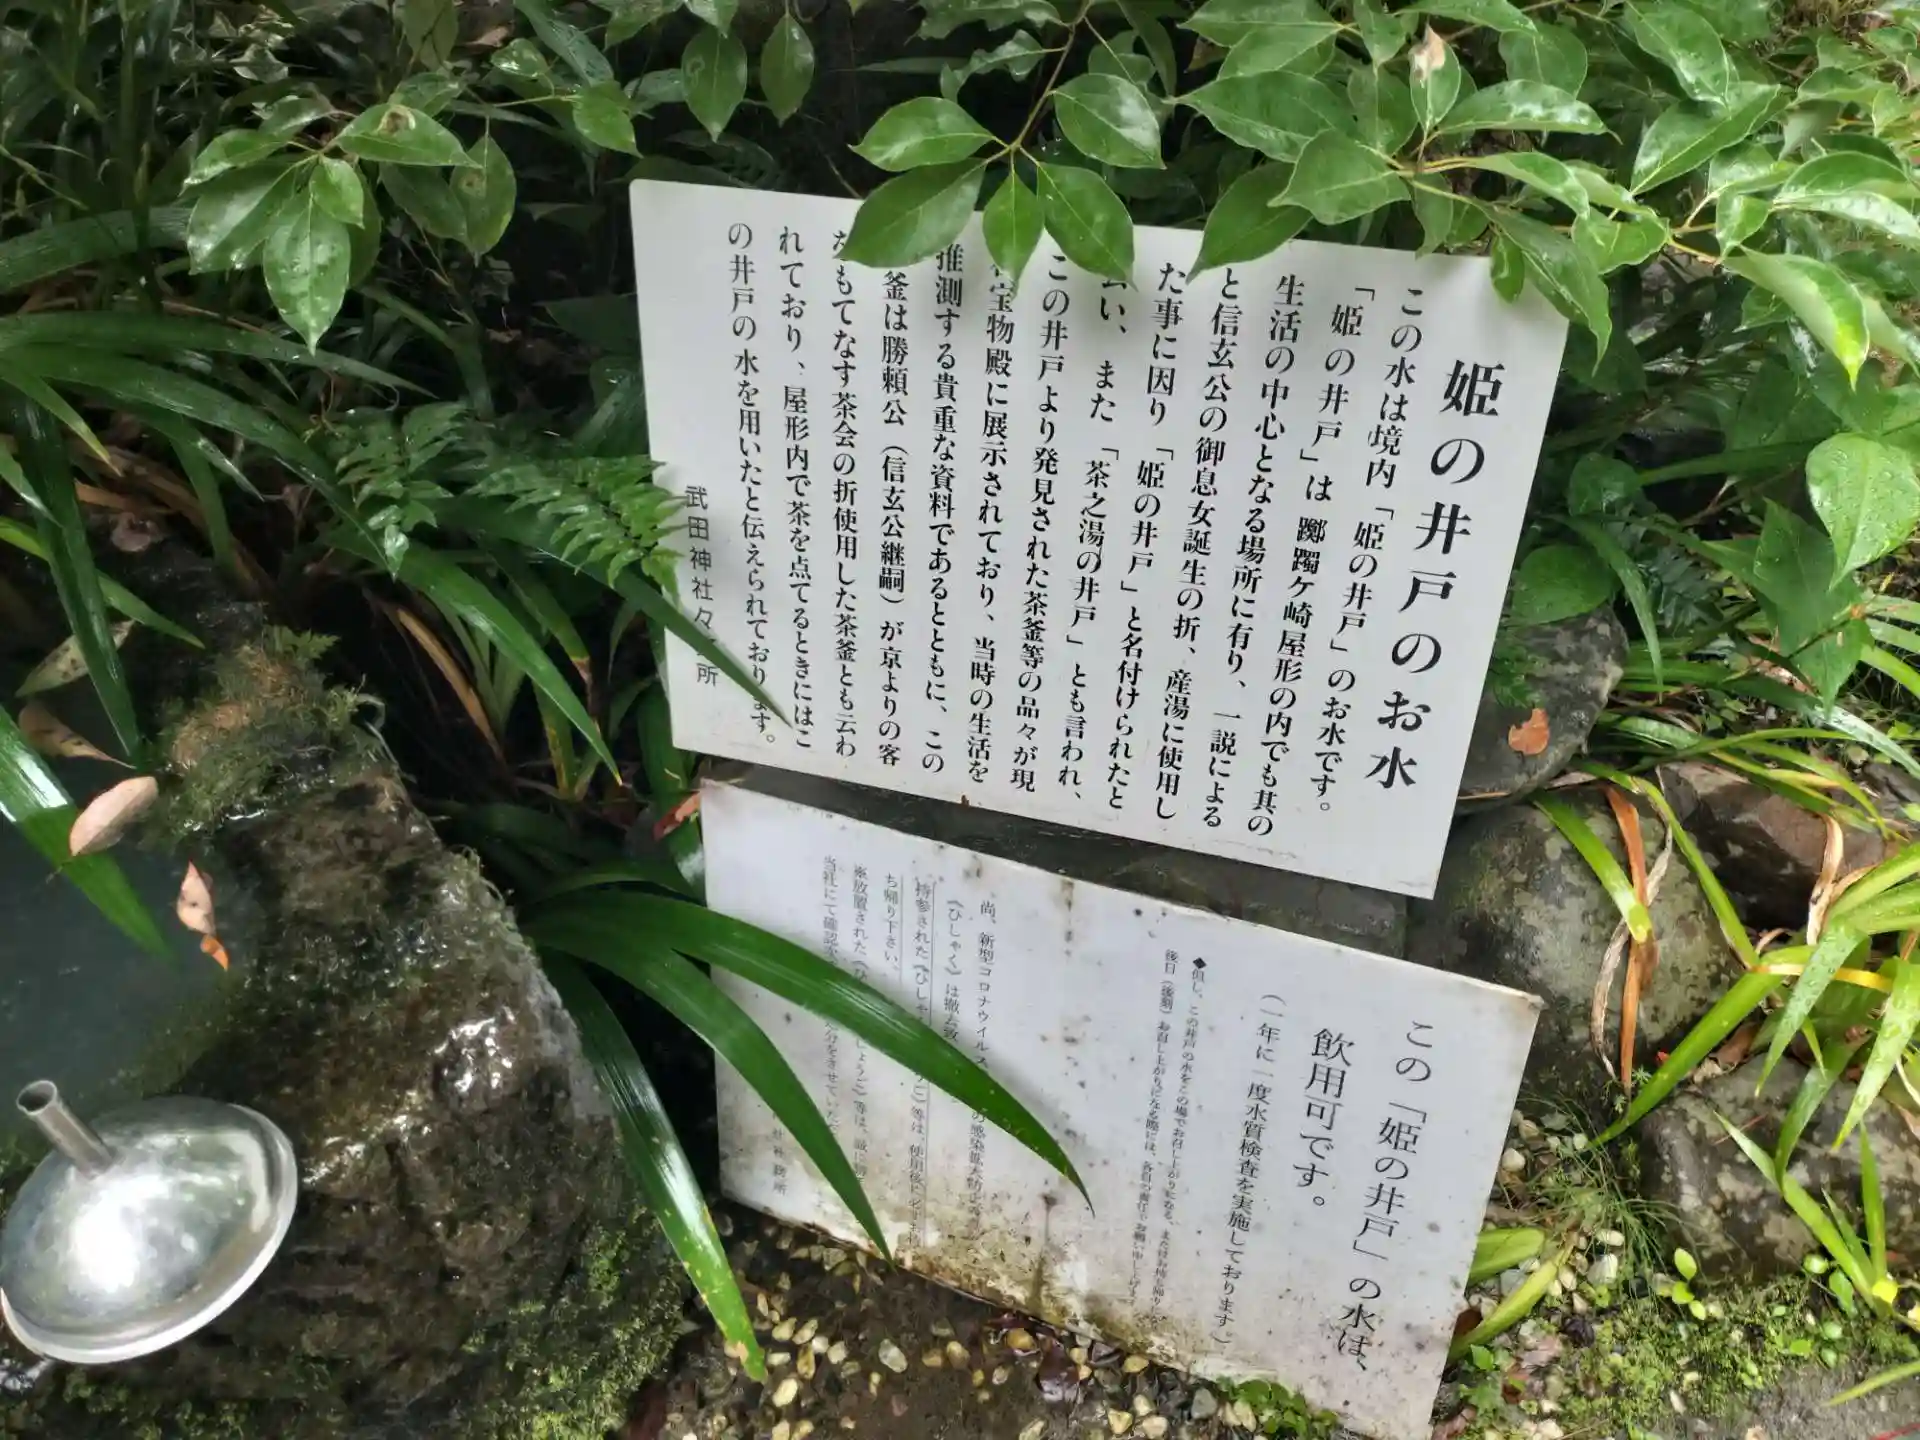 姫の井戸のお水
この水は境内「姫の井戸」のお水です。
「姫の井戸」は躑躅ケ崎屋形の内でも其の
生活の中心となる場所に有り、一説による
と信玄公の御息女誕生の折、産湯に使用し
た事に因り「姫の井戸」と名付けられたと
い、また「茶之湯の井戸」とも言われ、
この井戸より発見された茶釜等の品々が現
宝物殿に展示されており、当時の生活を
推測する貴重な資料であるとともに、この
釜は勝頼公（信玄公継嗣）が京よりの客
をもてなす茶会の折使用した茶釜とも云わ
れており、屋形内で茶を点てるときにはこ
の井戸の水を用いたと伝えられております。
武田神社々所
この「姫の井戸」の水は、
飲用可です。
（一年に一度水質検査を実施しております。）
◆但し、この井戸の水をこの場でお召し上がりになる、またはお持ち帰りになり
後日（後刻）お召し上がりになる際には、各自の責任でお願い申し上げます。
尚、新型コロナウイルスの感染拡大防止の為
《ひしゃく》は撤去致
持参された《ひしゃ等は、使用後に必ずお持
ち帰り下さい。
※放置された《ひしょうご》等は、
当社にて確認次分をさせていただ
社務所